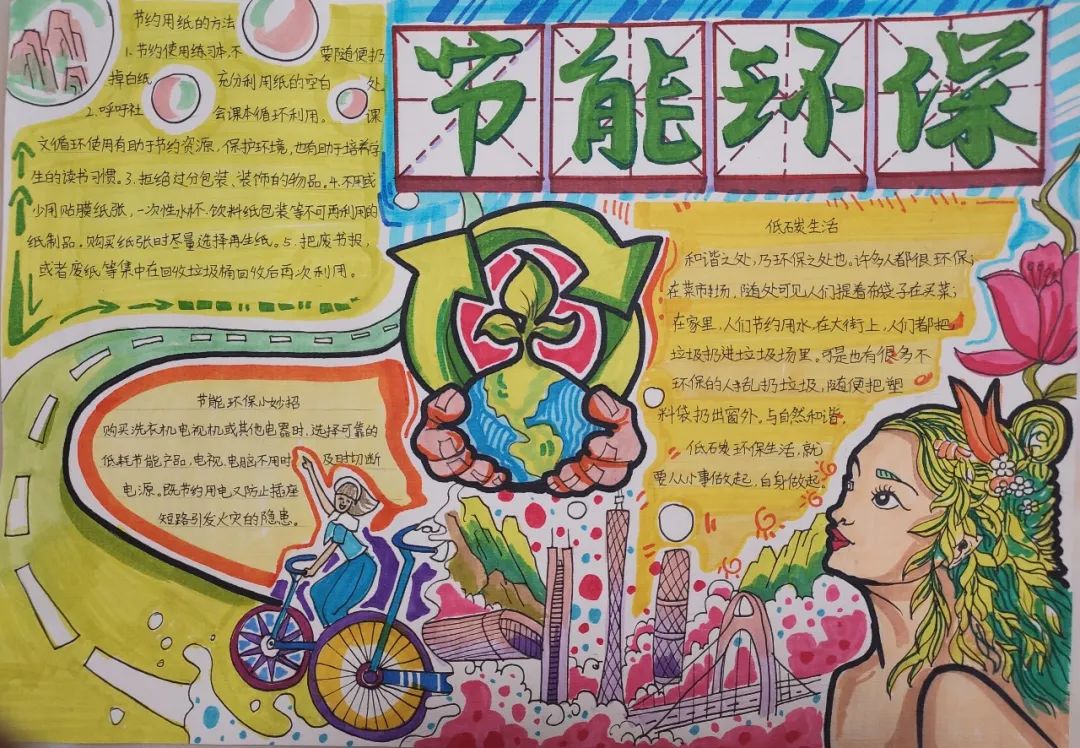 节能环保
节约用纸的方法
1.节约使用练习本,不要随便扔
掉白纸 充分利用纸的空白处
2.呼吁社会课本循环利用。课
文循环使用有助于节约资源,保护环境,也有助于培养学
生的读书习惯。3.拒绝过分包装、装饰的物品。4.不用或
少用贴膜纸张,一次性水杯.饮料纸包装等不可再利用的
纸制品,购买纸张时尽量选择再生纸。5.把废书报,
或者废纸等集中在回收垃圾桶回收后再次利用。
节能环保小妙招
购买洗衣机电视机或其他电器时,选择可靠的
低耗节能产品,电视.电脑不用时及时切断
电源。既节约用电又防止插座
短路引发火灾的隐患。
低碳生活
和谐之处,乃环保之处也。许多人都很环保;
在菜市场,随处可见人们提着布袋子在买菜;
在家里,人们节约用水,在大街上,人们都把
垃圾扔进垃圾场里。可是也有很多不
环保的人乱扔垃圾,随便把塑
料袋扔出窗外。与自然和谐,
低碳环保生活,就
要从小事做起,自身做起。